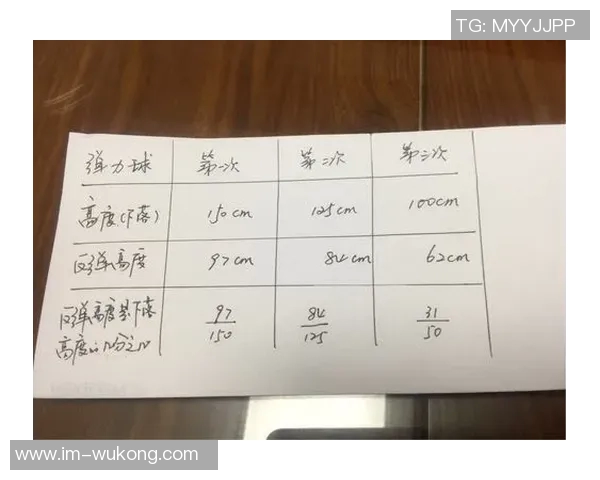 TG: MYYJJPP
弹力球 第一次 第二次 第三次
高度(下落) 150cm 125cm 100cm
反弹高度 97cm 84cm 62cm
反弹高度是下落 97/150 84/125 31/50
高度的几分之几
www.im-wukong.com